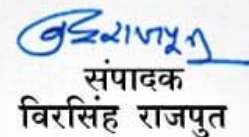 संपादक
विरसिंह राजपुत